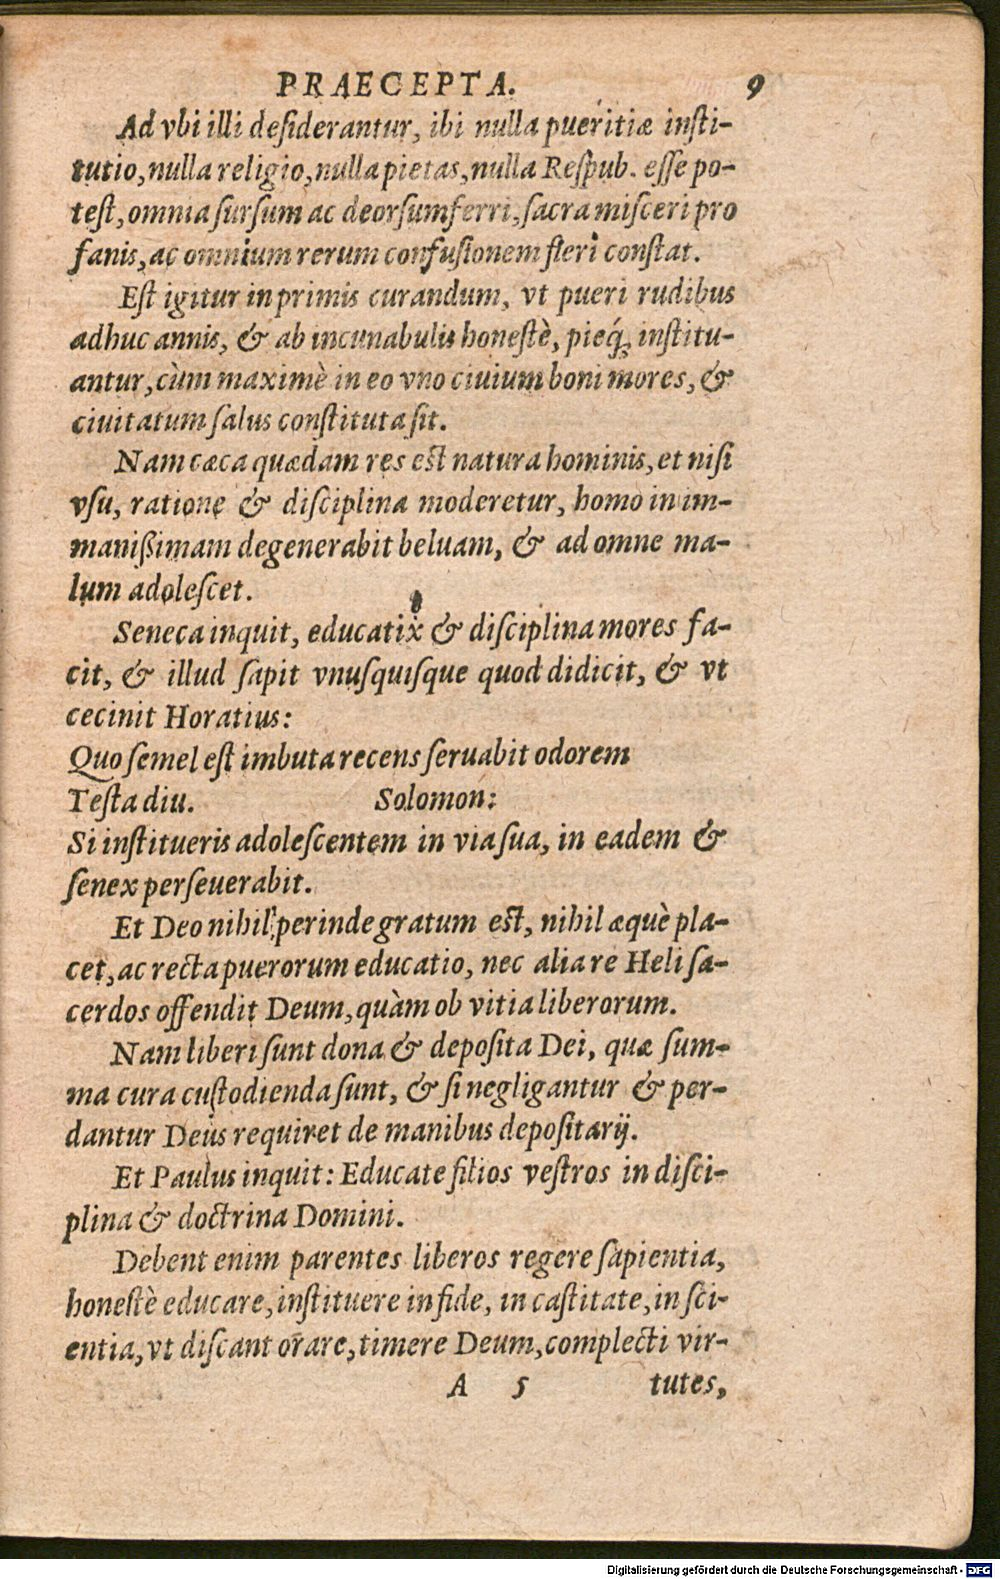 PRAECEPTA. 9
Ad vbi illi desiderantur, ibi nulla pueritiæ insti-
tutio, nulla religio, nulla pietas, nulla Respub. esse po-
test, omnia sursum ac deorsum ferri, sacra misceri pro
fanis, ac omnium rerum confusionem fieri constat.
Est igitur inprimis curandum, vt pueri rudibus
adhuc annis, & ab incunabulis honestè, pieq́; institu-
antur, cùm maximè in eo vno ciuium boni mores, &
ciuitatum salus constituta sit.
Nam cæca quædam res est natura hominis, et nisi
vsu, ratione & disciplina moderetur, homo in im-
manißimam degenerabit beluam, & ad omne ma-
lum adolescet.
Seneca inquit, educatix & disciplina mores fa-
cit, & illud sapit vnusquisque quod didicit, & vt
cecinit Horatius:
Quo semel est imbuta recens seruabit odorem
Testa diu. Solomon:
Si institueris adolescentem in via sua, in eadem &
senex perseuerabit.
Et Deo nihil perinde gratum est, nihil æquè pla-
cet, ac recta puerorum educatio, nec alia re Heli sa-
cerdos offendit Deum, quàm ob vitia liberorum.
Nam liberi sunt dona & deposita Dei, quæ sum-
ma cura custodienda sunt, & si negligantur & per-
dantur Deus requiret de manibus depositarij.
Et Paulus inquit: Educate filios vestros in disci-
plina & doctrina Domini.
Debent enim parentes liberos regere sapientia,
honestè educare, instituere in fide, in castitate, in sci-
entia, vt discant orare, timere Deum, complecti vir-
A 5 tutes,
Digitalisierung gefördert durch die Deutsche Forschungsgemeinschaft - DFG